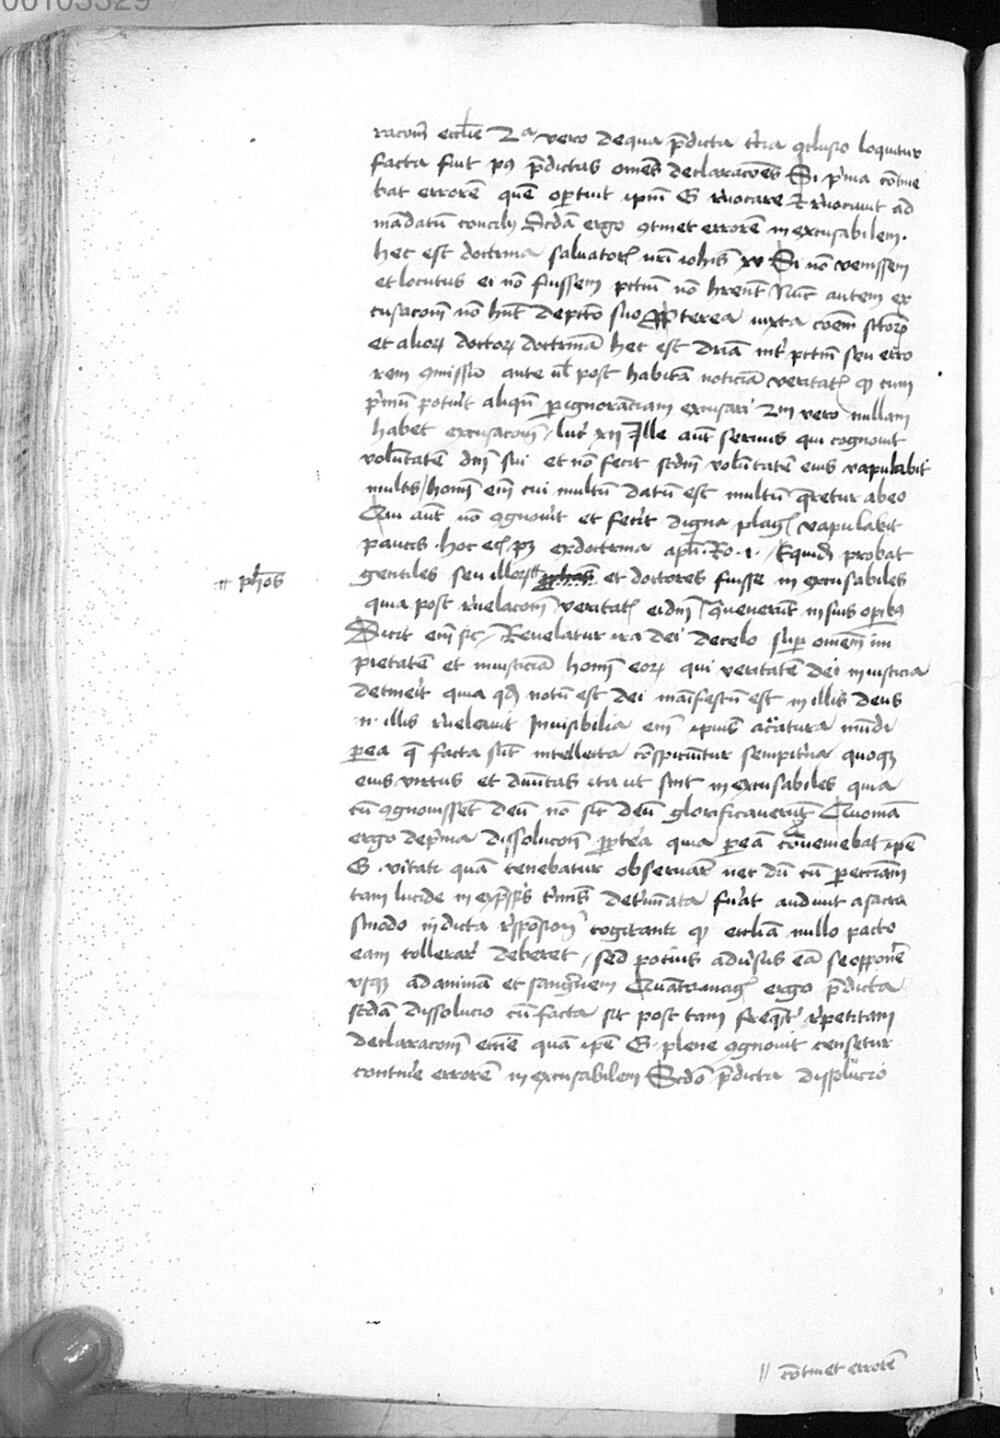 00103329
racom̄ eccl̄ie 2ᵃ vero de qua p̄dicta t'cia 9clusio loquitur
facta fuit p9 p̄dictas om̄es declaracōes Si p'ma cōtine
bat errorē quē oportuit ip̄m G revocare et revocavit ad
mādatū concilij Scd̄a ergo 9tinet errorē inexcusabilem.
hec est doctrina salvatoris n̄ri ioh̄is xv Si nō venissem
et locutus ei nō fuissem pctm̄ nō hr̄ent Nūc autem ex
cusacom̄ nō hn̄t de pctō suo Pp̄terea iuxta cōem sctorꝝ
et aliorꝝ doctorꝝ doctrinā hec est dr̄ia int' pctm̄ seu erro
rem 9missū ante vl̄ post habitā noticiā veritatis qꝫ cum
p'mū potuit aliqn̄ p ignoranciam excusari 2m vero nullam
habet excusacom̄ / luc' xij Ille aut̄ servus qui cognovit
volūtatē dn̄i sui et nō fecit scdm̄ volūtatē eius vapulabit
multis / hom̄i em̄ cui multū datū est multū q̄retur ab eo
Qui aut̄ nō 9gnovit et fecit digna plagis vapulabit
paucis . hoc eciā pꝫ ex doctrina ap̄li . Ro . 1 . Equidē probat
gentiles seu illorꝝ // et doctores fuisse inexcusabiles
// ph̄os
quia post revelacom̄ veritatis eisdem 9venerūt in suis op̄ibꝰ
Dicit em̄ sic / Revelatur ira dei de celo sup om̄em im
pietatē et iniusticiā hom̄ eorꝝ qui veritatē dei in iusticia
detinēt quia qd̄ notū est dei māifestū est in illis deus
.n. illis revelavit Invisibilia em̄ ipius a c'atura mūdi
p ea q̄ facta sūt intellecta cōspiciūtur sempit'na quoqꝫ
eius virtus et divītas ita ut sint inexcusabiles quia
cū 9gnovissēt deū nō sic̄ deū glorificaverūt Quoniā
ergo de p'ma dissolucom̄ pp̄t'ea quia p eā cōveniebat ip̄e
G . vitari quā tenebatur observar̄ nec dū cū p ecciam̄
tam lucide in exp̄ssis t'mis det'mīata fu'at audivit a sacra
sinodo in dicta r̄sponsiōi cogitanti qꝫ eccliā nullo pacto
eam tollerar̄ deberet / sed potius adv'sus eā se opponē
usqꝫ ad animā et sangu̇nem Quātomagis ergo p̄dicta
scd̄a dissolucio cū facta sit post tam freq̄ter r̄petitam
declaracom̄ ecciē quā ip̄e G . plene 9gnovit censetur
continē errorē inexcusabilem Scdō p̄dicta dissolucio
// cōtinet errorē